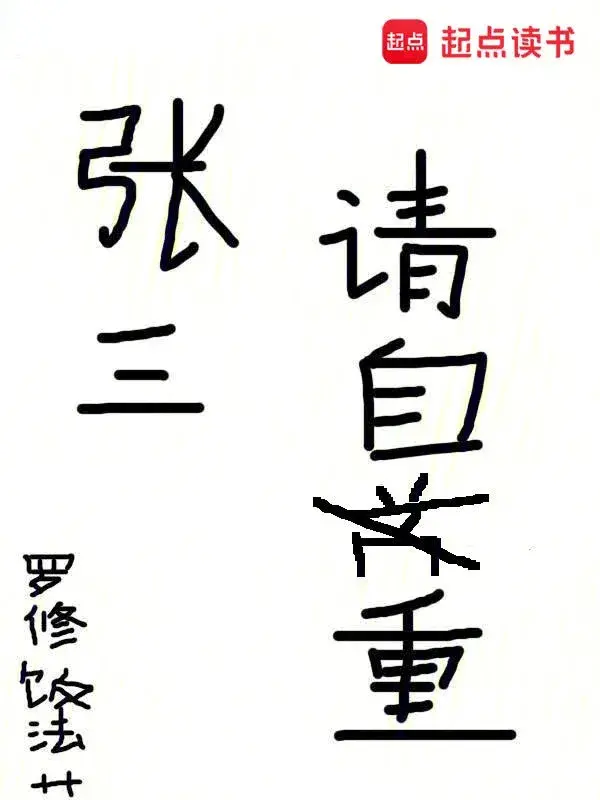 起点
起点读书
张三
请自重
罗修饭法艹